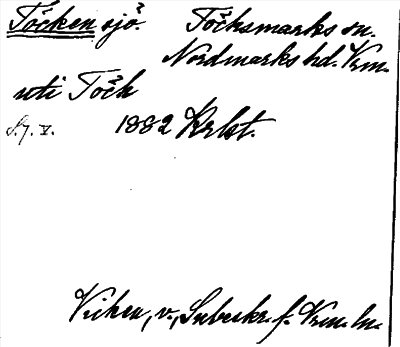 Töcken sjö. Töcksmarks sn.
Nordmarks hd. Vrm.
uti Töck
S. 7. V. 1882 Krbst.
Viken, v., f. Vrm. ln.